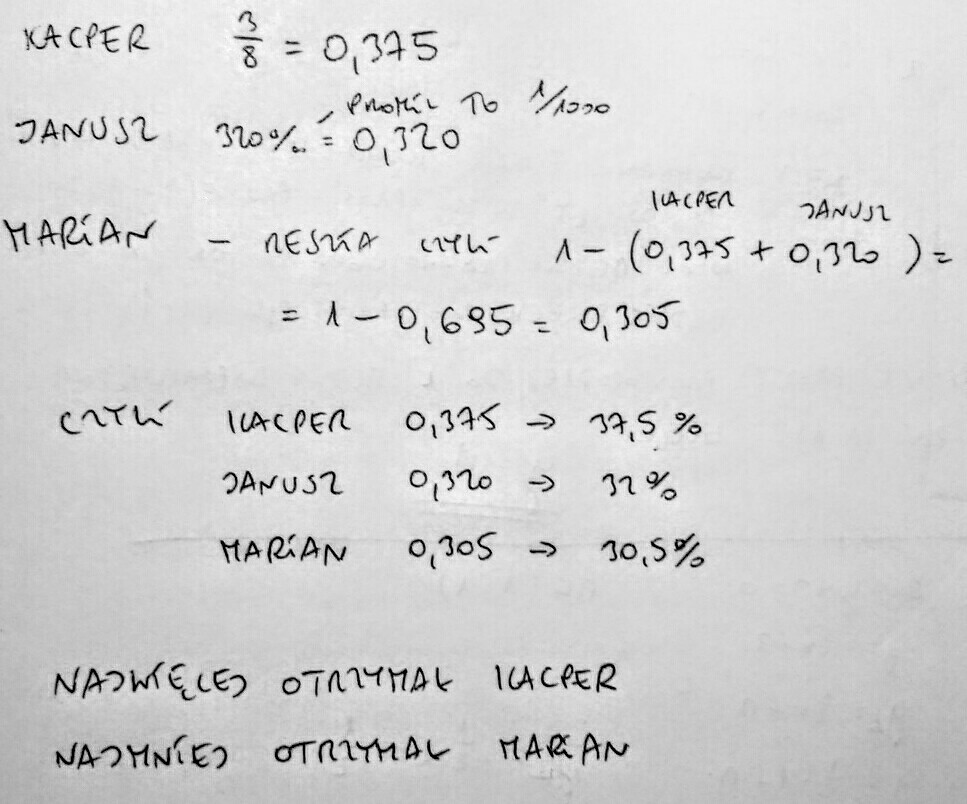 KACPER 3/8 = 0,375
PROMIL TO 1/1000
JANUSZ 320‰ = 0,320
KACPER JANUSZ
MARIAN - RESZTA CZYLI 1 - (0,375 + 0,320) =
= 1 - 0,695 = 0,305
CZYLI KACPER 0,375 → 37,5 %
JANUSZ 0,320 → 32 %
MARIAN 0,305 → 30,5 %
NAJWIĘCEJ OTRZYMAŁ KACPER
NAJMNIEJ OTRZYMAŁ MARIAN